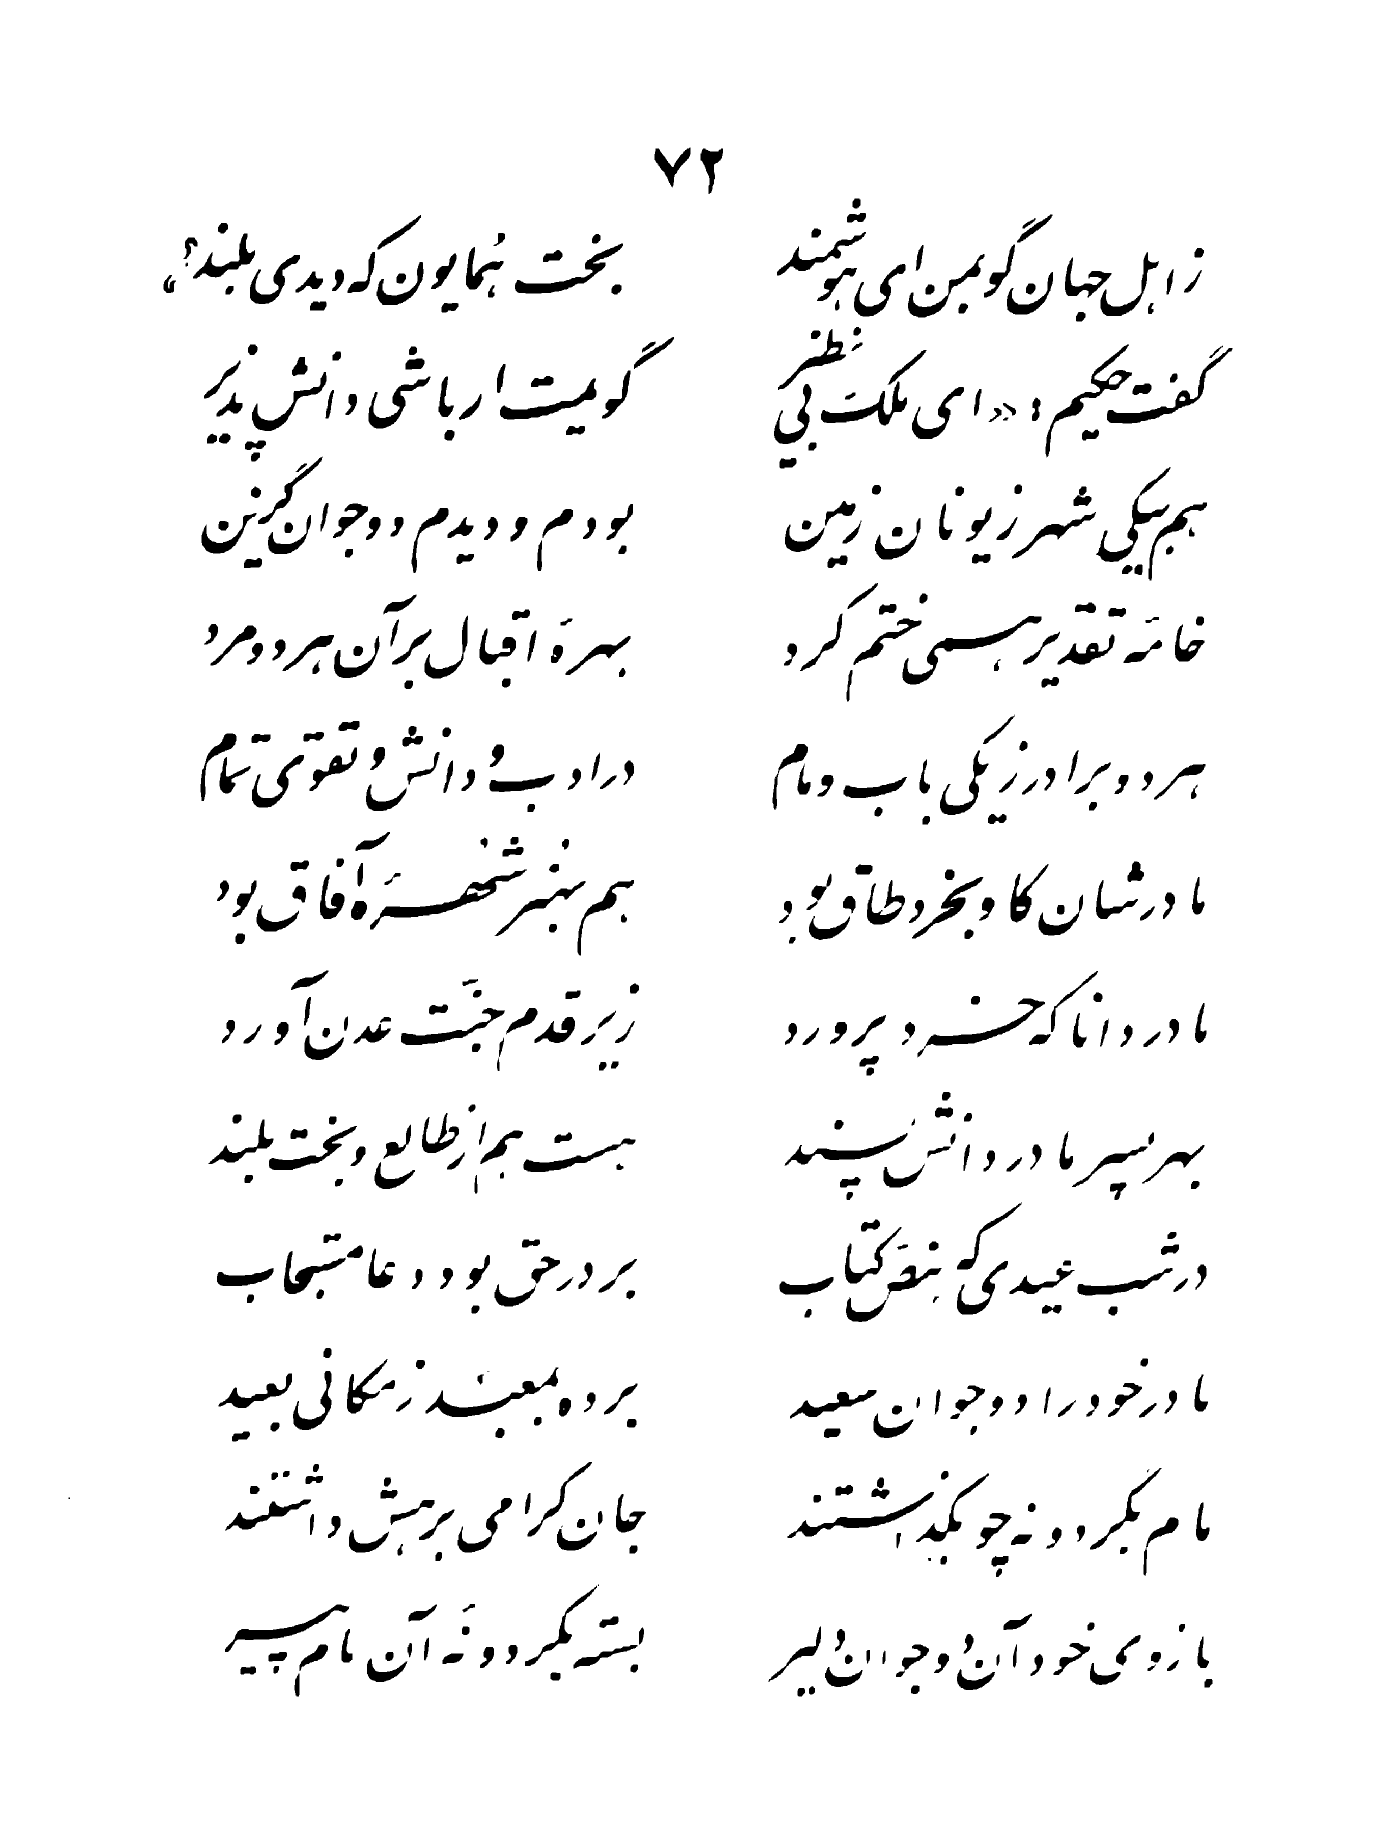 ۷۲
ز اهل جهان گو بمن ای هوشمند بخت هُمایون که دیدی بلند؟»
گفت حکیم: «ای ملک بی نظیر گویمت ار باشی دانش پذیر
هم بیکی شهر ز یونان زمین بودم و دیدم دو جوان گزین
خامهٔ تقدیر همی ختم کرد بهرهٔ اقبال بر آن هر دو مرد
هر دو برادر ز یکی باب و مام در ادب و دانش و تقوی تمام
مادرشان کاو بخرد طاق بود هم بهنر شهرهٔ آفاق بود
مادر دانا که خرد پرورد زیر قدم جنّت عدن آورد
بهر پسر مادر دانش پسند هست هم از طالع و بخت بلند
در شب عیدی که بنصّ کتاب بر در حق بود دعا مستجاب
مادر خود را دو جوان سعید برده بمعبد ز مکانی بعید
مام بگردونه چو بگذاشتند جان گرامی برهش داشتند
بازوی خود آن دو جوان دلیر بسته بگردونهٔ آن مام پیر